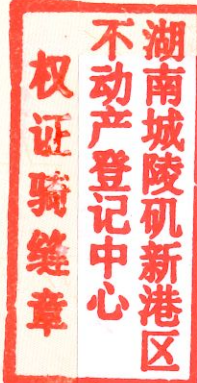 湖南城陵矶新港区
不动产登记中心
权证骑缝章